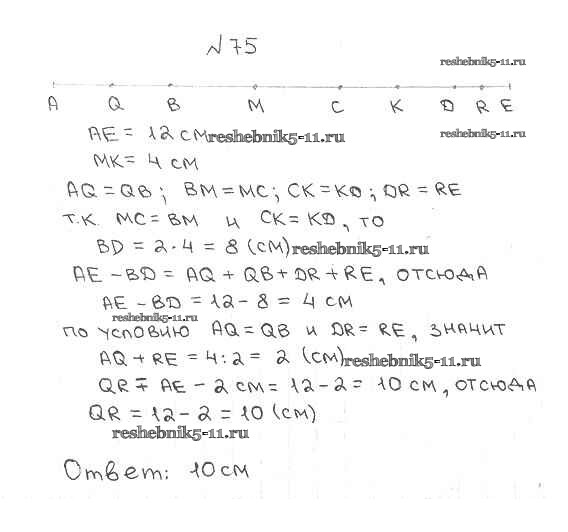 №75
reshebnik5-11.ru
A Q B M C K D R E
AE = 12 см reshebnik5-11.ru reshebnik5-11.ru
MK = 4 см
AQ = QB; BM = MC; CK = KD; DR = RE
т.к. MC = BM и CK = KD, то
BD = 2·4 = 8 (см) reshebnik5-11.ru
AE – BD = AQ + QB + DR + RE, отсюда
AE – BD = 12 – 8 = 4 см
reshebnik5-11.ru
по условию AQ = QB и DR = RE, значит
AQ + RE = 4:2 = 2 (см) reshebnik5-11.ru
QR = AE – 2 см = 12 – 2 = 10 см, отсюда
QR = 12 – 2 = 10 (см)
reshebnik5-11.ru
Ответ: 10 см